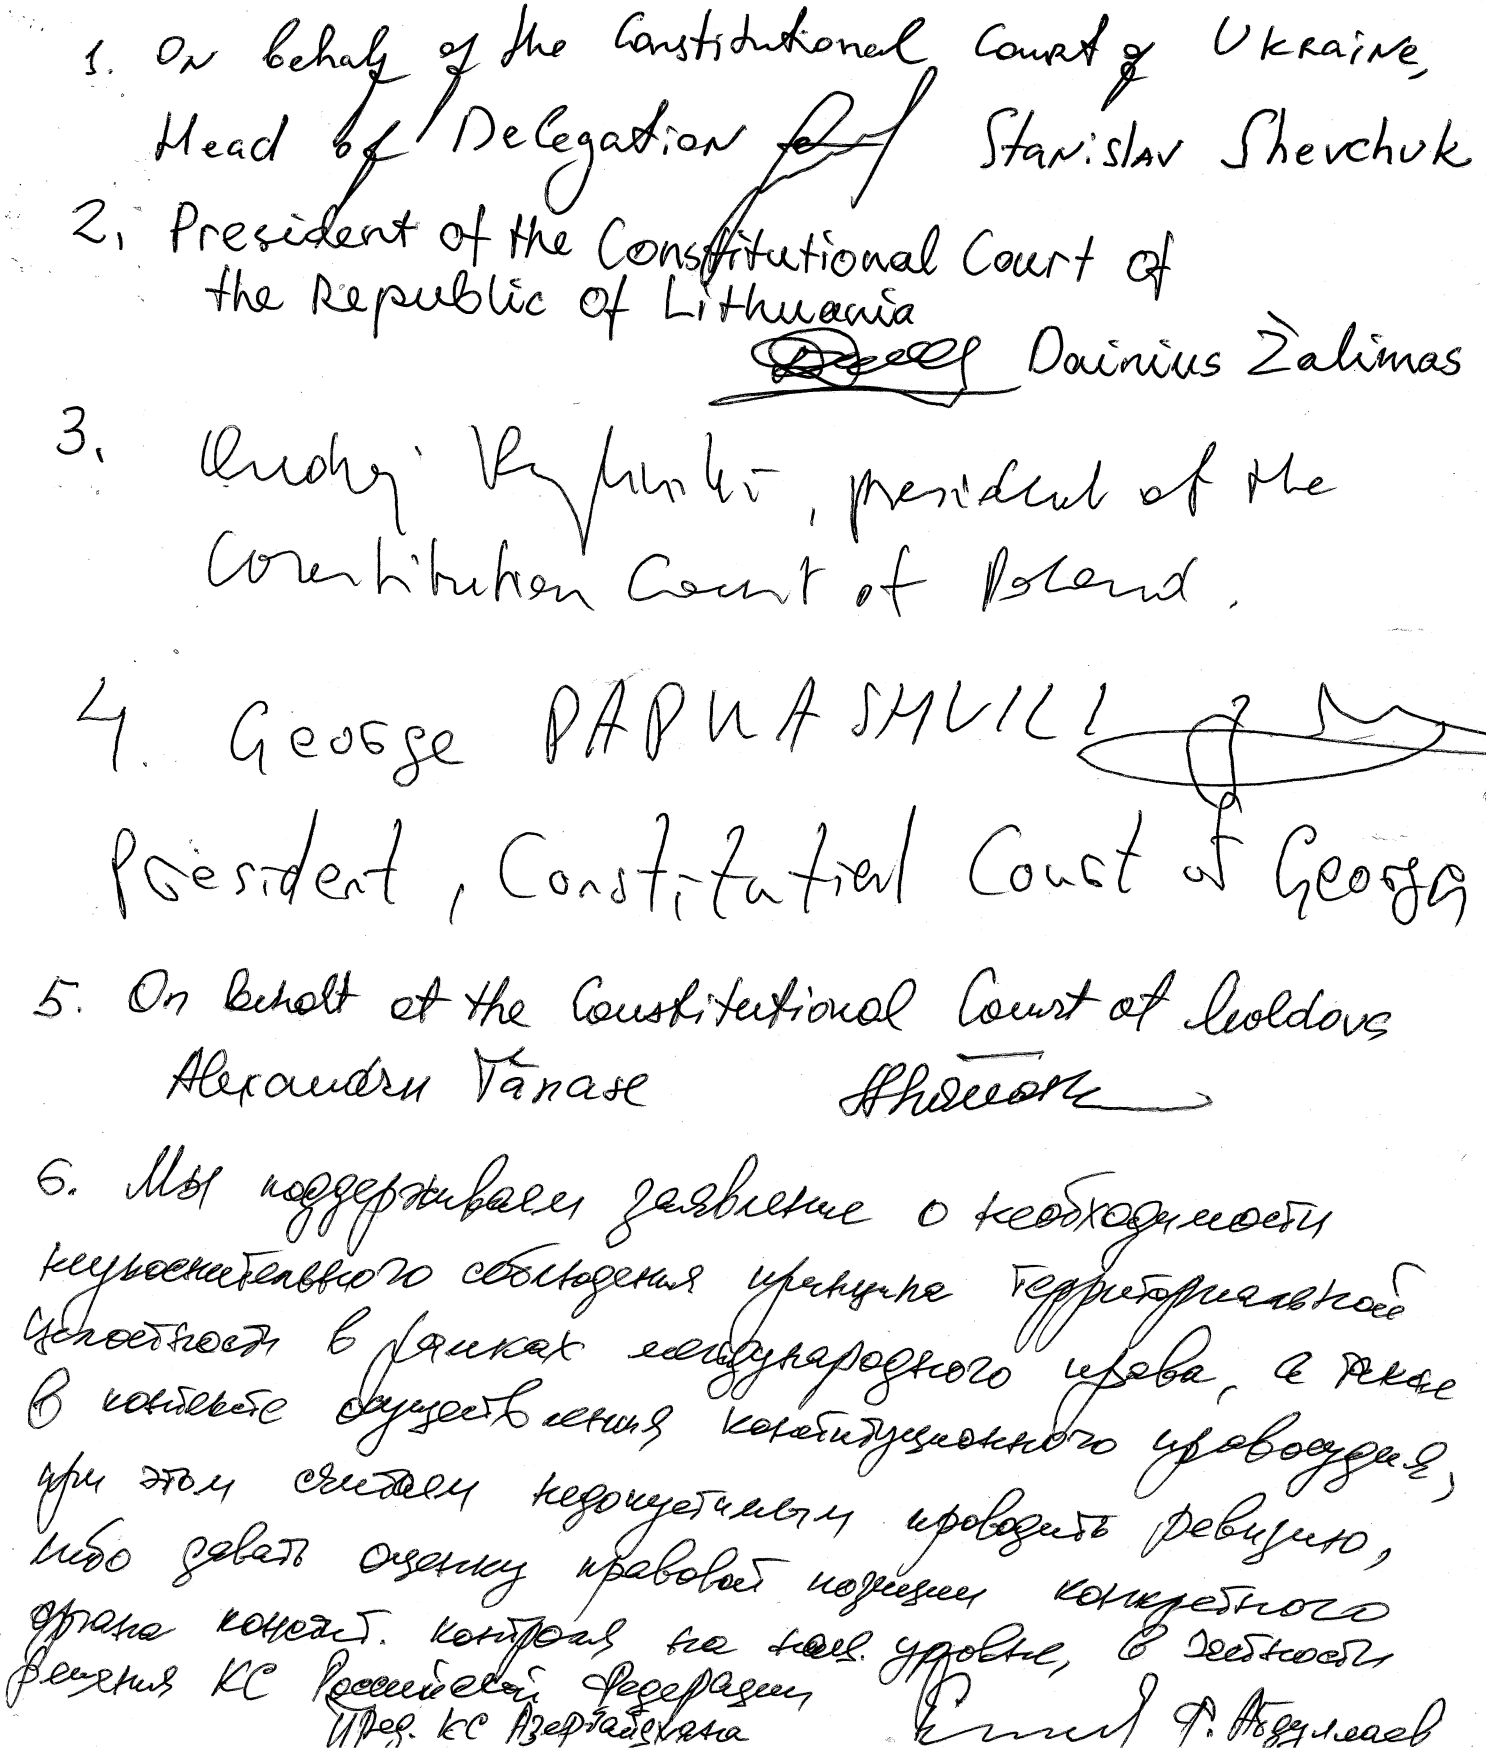 1. On behalf of the Constitutional Court of Ukraine,
Head of Delegation Stanislav Shevchuk
2. President of the Constitutional Court of
the Republic of Lithuania
Dainius Žalimas
3. Andrzej Rzepliński, president of the
Constitution Court of Poland.
4. George PAPUASHVILI
President, Constitutial Court of Georgia
5. On behalf of the Constitutional Court of Moldova
Alexandru Tănase
6. Мы поддерживаем заявление о необходимости
неукоснительного соблюдения принципа территориальной
целостности в рамках международного права, а также
в контексте осуществления конституционного правосудия,
при этом считаем недопустимым проводить ревизию,
либо давать оценку правовой позиции конкретного
органа конст. контроля на нац. уровне, в частности
решения КС Российской Федерации
Пред. КС Азербайджана Ф. Абдуллаев